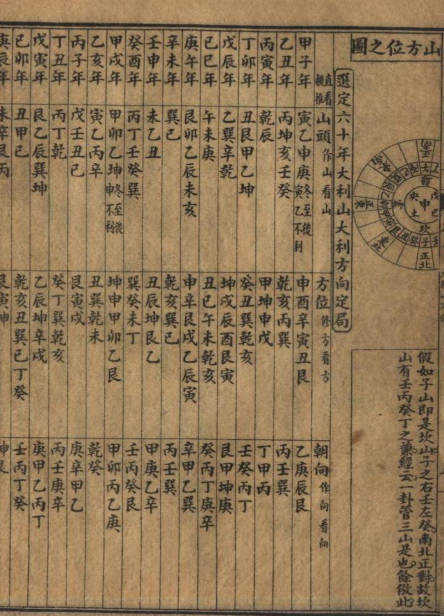 山方位之圖
假如子山即是坎山子之右壬左癸南北正對故坎
山有壬丙癸丁之兼經云一卦管三山是也餘倣此
選定六十年大利山大利方向定局
直看橫推 山頭作山看山 方位修方看方 朝向作向看向
甲子年 寅乙申庚冬至後寅乙不利 申酉辛寅丑艮 乙庚辰艮
乙丑年 丙坤亥壬癸 乾亥丙巽 丙壬巽
丙寅年 乾辰 甲坤申戌 丁甲丙
丁卯年 丑艮甲乙坤 癸丑巽乾亥 壬癸丙丁
戊辰年 乙巽辛乾 坤戌辰酉艮寅 艮甲坤庚
己巳年 午未庚 丑巳午未乾亥 癸丙丁庚辛
庚午年 艮卯乙辰未亥 申辛艮戌乙辰寅 辛甲乙巽
辛未年 巽巳 乾亥巽巳 丙壬巽
壬申年 未乙丑 丑辰坤艮乙 甲庚乙辛
癸酉年 丙丁壬癸巽 巽癸未丁 壬丙癸艮
甲戌年 甲卯乙坤申冬至後不利 坤申甲卯乙艮 甲卯丙乙庚
乙亥年 寅乙丙辛 丑巽乾未 乾癸
丙子年 戊壬丑巳 艮寅戌 庚辛甲乙
丁丑年 丙丁乾 癸丁巽乾亥 丙壬庚辛
戊寅年 艮乙辰巽坤 乙辰坤辛戌 庚甲乙丙丁
己卯年 丑甲巳 乾亥丑巽巳丁癸 壬丙丁癸
庚辰年 未辛艮丙 艮寅坤